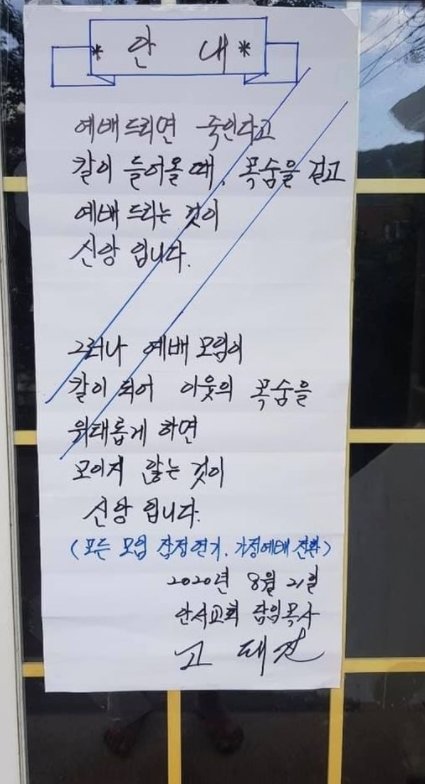 * 안 내 *
예배드리면 죽인다고
칼이 들어올 때, 목숨을 걸고
예배드리는 것이
신앙 입니다.
그러나 예배 모임이
칼이 되어 이웃의 목숨을
위태롭게 하면
모이지 않는 것이
신앙 입니다.
(모든 모임 잠정연기, 가정예배 전환)
2020년 8월 21일
안서교회 담임목사
고 태진